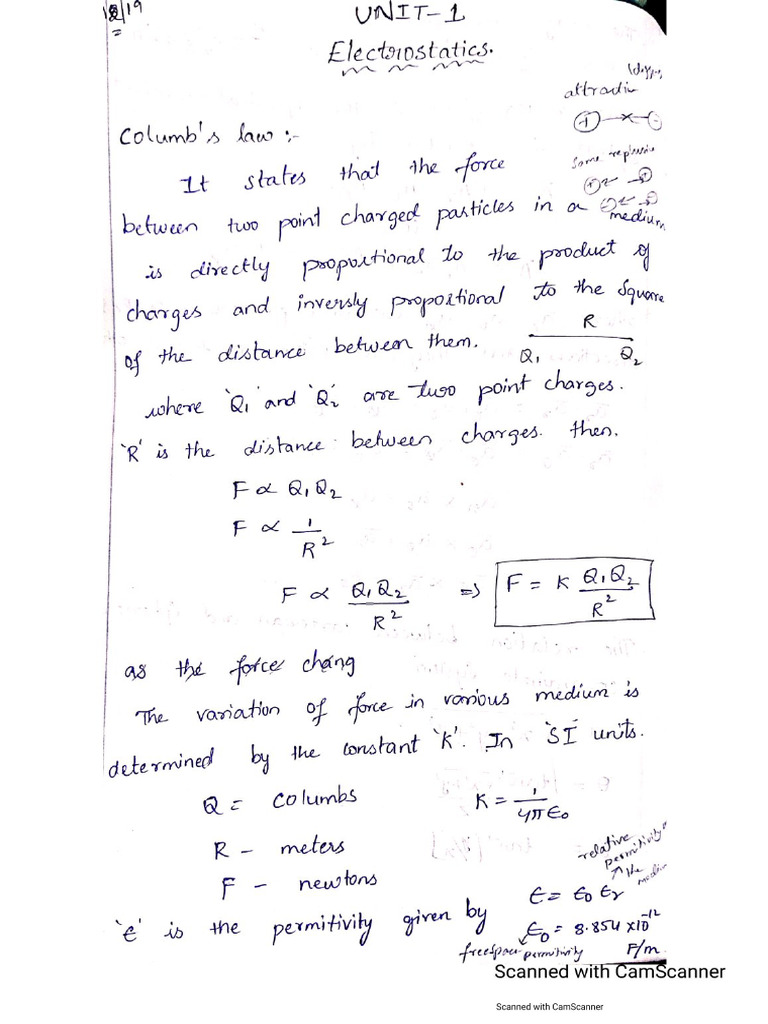 /19
UNIT-1
Electrostatics.
attractio
Columb's law :-
It states that the force
same repulsive
between two point charged particles in a
medium
is directly propotional to the product of
charges and inversly propotional to the square
of the distance between them.
R
Q1 Q2
where 'Q1' and 'Q2' are two point charges.
'R' is the distance between charges. then.
F ∝ Q1Q2
F ∝ 1/R²
F ∝ Q1Q2/R² ⇒ F = K Q1Q2/R²
as the force chang
The variation of force in various medium is
determined by the constant 'K'. In 'SI' units.
Q = Columbs K = 1/4π∈0
R - meters
F - newtons
relative permitivity
↗ the medium
∈ = ∈0 ∈r
'∈' is the permitivity given by
∈0 = 8.854 x10⁻¹² F/m
freespace permitivity
Scanned with CamScanner
Scanned with CamScanner